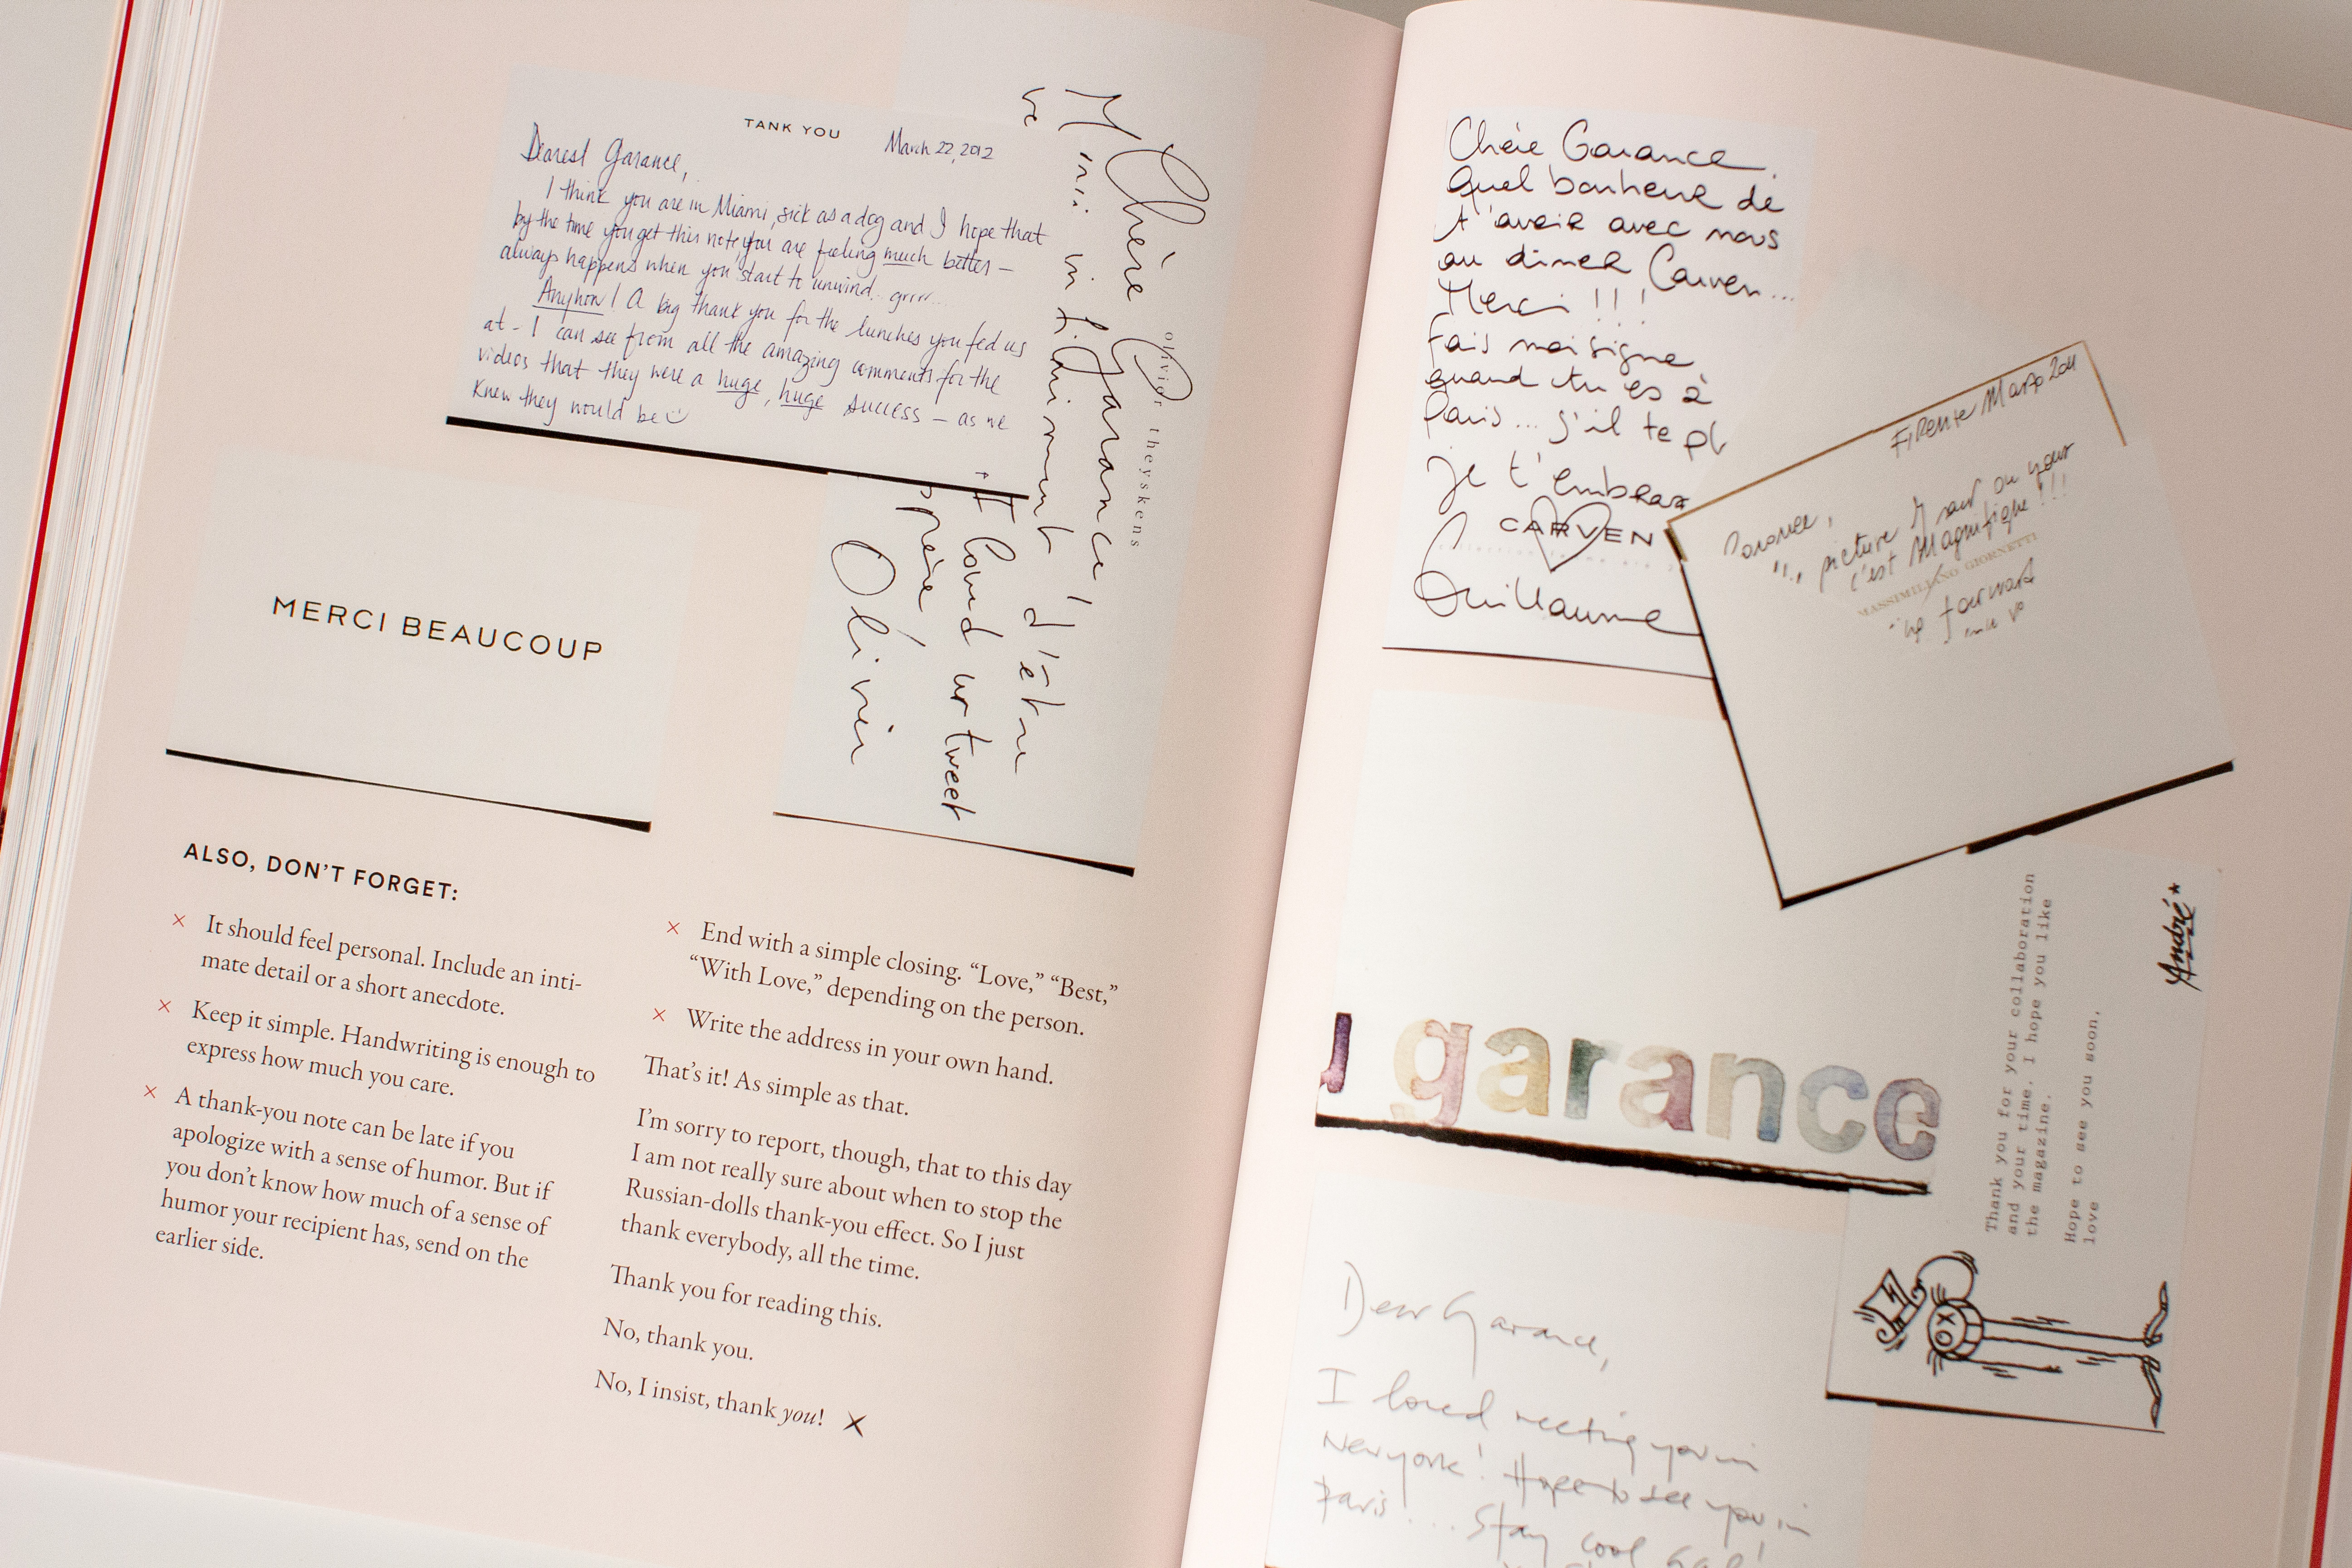 TANK YOU
March 22, 2012
Dearest Garance,
I think you are in Miami, sick as a dog and I hope that
by the time you get this note, you are feeling much better —
always happens when you start to unwind.. grrrr...
Anyhow! A big thank you for the lunches you fed us
at - I can see from all the amazing comments for the
videos that they were a huge, huge success — as we
knew they would be
olivier theyskens
Chère Garance!
M
d'être
Olivier
MERCI BEAUCOUP
ALSO, DON'T FORGET:
× It should feel personal. Include an inti-
mate detail or a short anecdote.
× Keep it simple. Handwriting is enough to
express how much you care.
× A thank-you note can be late if you
apologize with a sense of humor. But if
you don't know how much of a sense of
humor your recipient has, send on the
earlier side.
× End with a simple closing. “Love,” “Best,”
“With Love,” depending on the person.
× Write the address in your own hand.
That's it! As simple as that.
I'm sorry to report, though, that to this day
I am not really sure about when to stop the
Russian-dolls thank-you effect. So I just
thank everybody, all the time.
Thank you for reading this.
No, thank you.
No, I insist, thank you! ×
Chère Garance.
Quel bonheur de
t'avoir avec nous
au diner Carven...
Merci !!!
Fais moi signe
quand tu es à
Paris... s'il te pl
je t'embrass
CARVEN
Guillaume
Firenze Marzo 2011
Garance,
picture I saw on your
c'est Magnifique!!!
MASSIMILIANO GIORNETTI
forward
garance
Thank you for your collaboration
and your time. I hope you like
the magazine.
Hope to see you soon,
love
André*
Dear Garance,
I loved meeting you in
New York! Hope to see you in
Paris... Stay cool